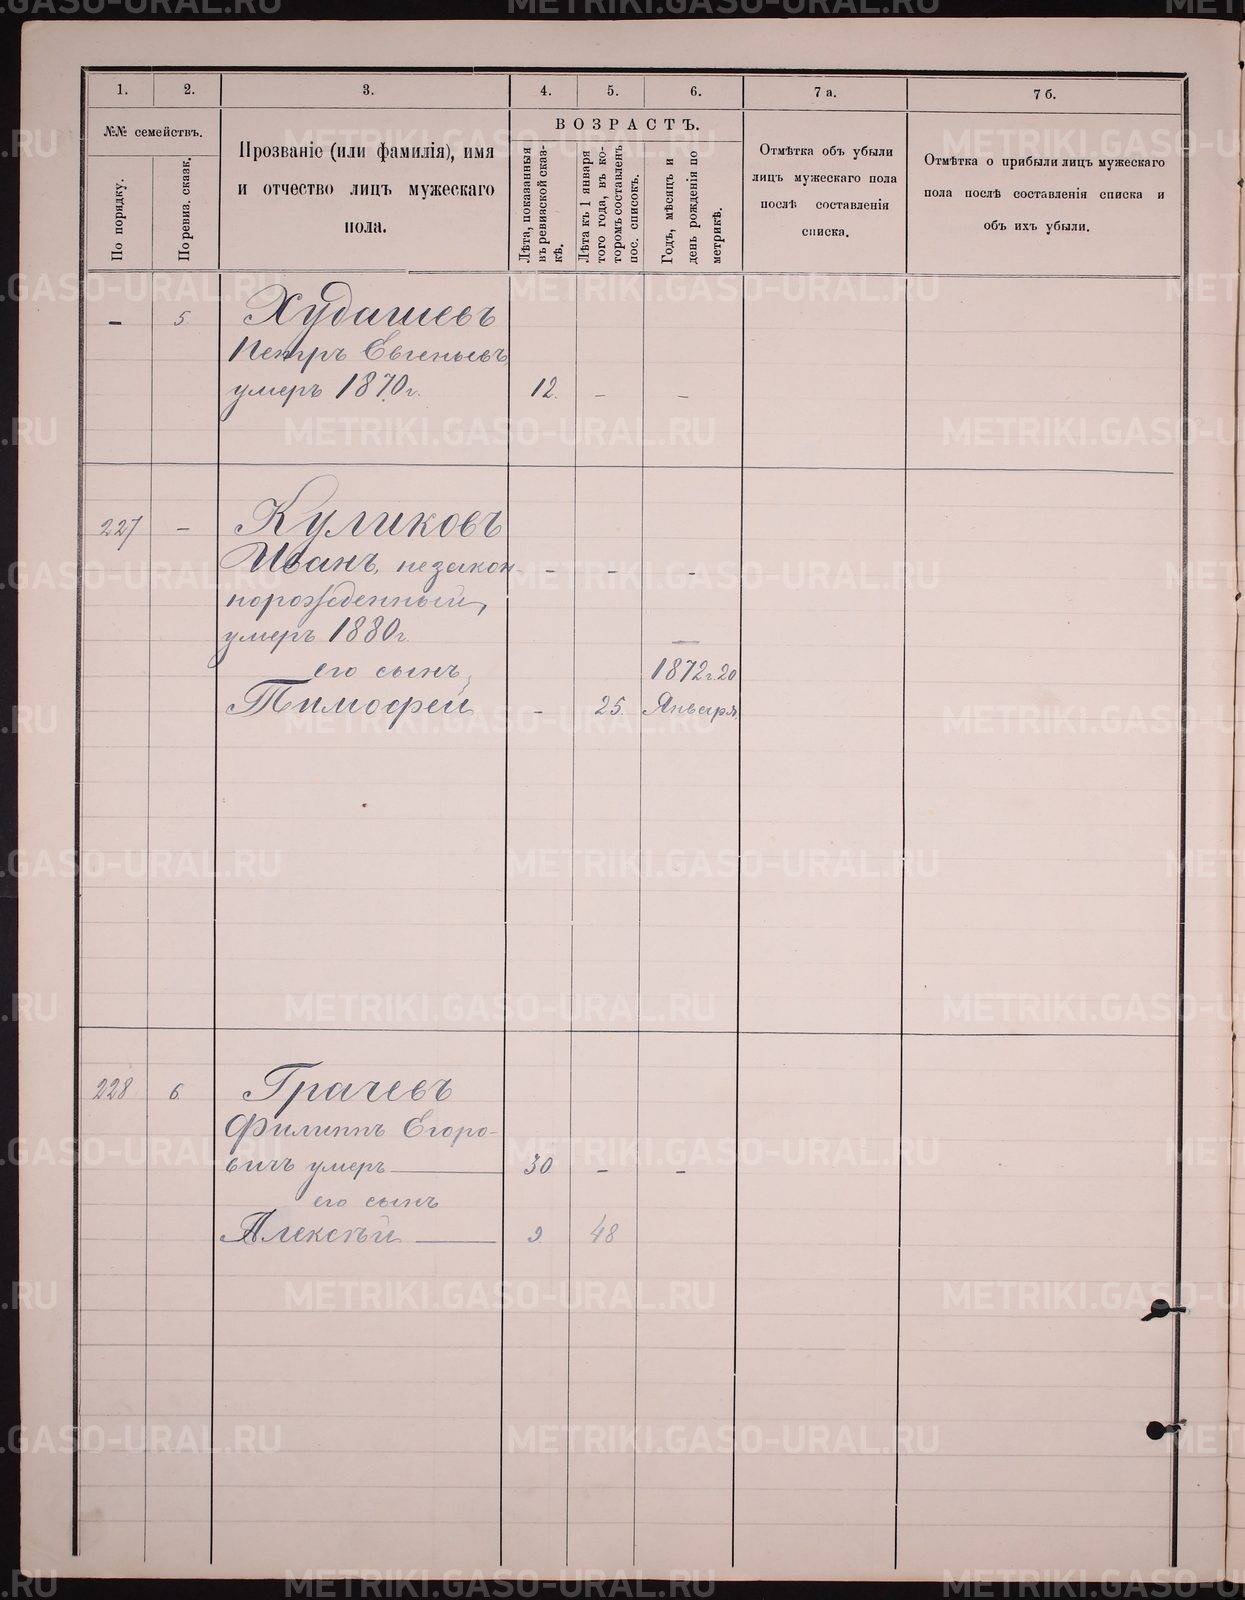 1. 2. 3. 4. 5. 6. 7 а. 7 б.
№№ семействъ.
По порядку.
По ревиз. сказк.
Прозваніе (или фамилія), имя
и отчество лицъ мужескаго
пола.
ВОЗРАСТЪ.
Лѣта, показанныя
въ ревизской сказ-
кѣ.
Лѣта къ 1 января
того года, въ ко-
торомъ составленъ
пос. списокъ.
Годъ, мѣсяцъ и
день рожденія по
метрикѣ.
Отмѣтка объ убыли
лицъ мужескаго пола
послѣ составленія
списка.
Отмѣтка о прибыли лицъ мужескаго
пола послѣ составленія списка и
объ ихъ убыли.
– 5 Худяшевъ
Петръ Евгеньевъ
умеръ 1870 г. 12. – –
227 – Куликовъ
Иванъ, незакон- – – –
норожденный,
умеръ 1880 г. –
его сынъ, 1872 г. 20
Тимофей – 25. Января
228 6 Грачевъ
Филиппъ Егоро-
вичъ умеръ 30 – –
его сынъ
Алексѣй 9 48
METRIKI.GASO-URAL.RU